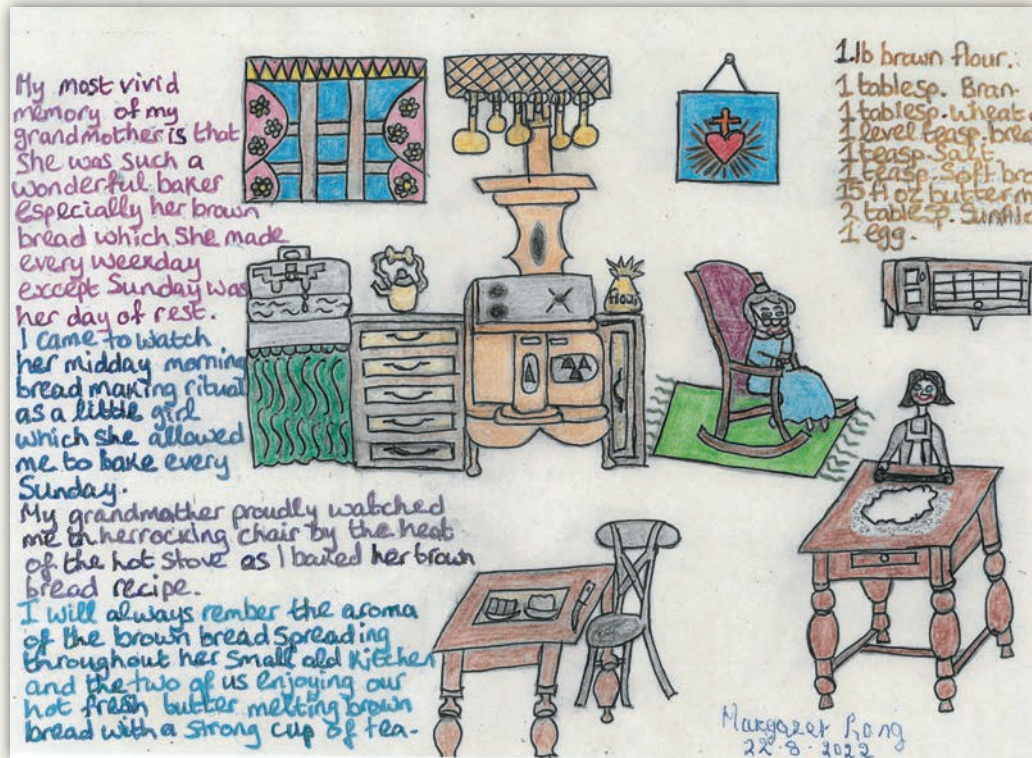 My most vivid
memory of my
grandmother is that
She was such a
wonderful baker
especially her brown
bread which she made
every weekday
except Sunday was
her day of rest.
I came to watch
her midday morning
bread making ritual
as a little girl
which she allowed
me to bake every
Sunday.
My grandmother proudly watched
me in her rocking chair by the heat
of the hot stove as I baked her brown
bread recipe.
I will always rember the aroma
of the brown bread spreading
throughout her small old kitchen
and the two of us enjoying our
hot fresh butter melting brown
bread with a strong cup of tea.
1 lb brown flour.
1 tablesp. Bran.
1 tablesp. wheat
1 level teasp. brea
1 teasp. Salt
1 teasp. Soft bro
15 fl oz butterm
2 tablesp. Sunflo
1 egg.
Flour
Margaret Long
22.8.2022